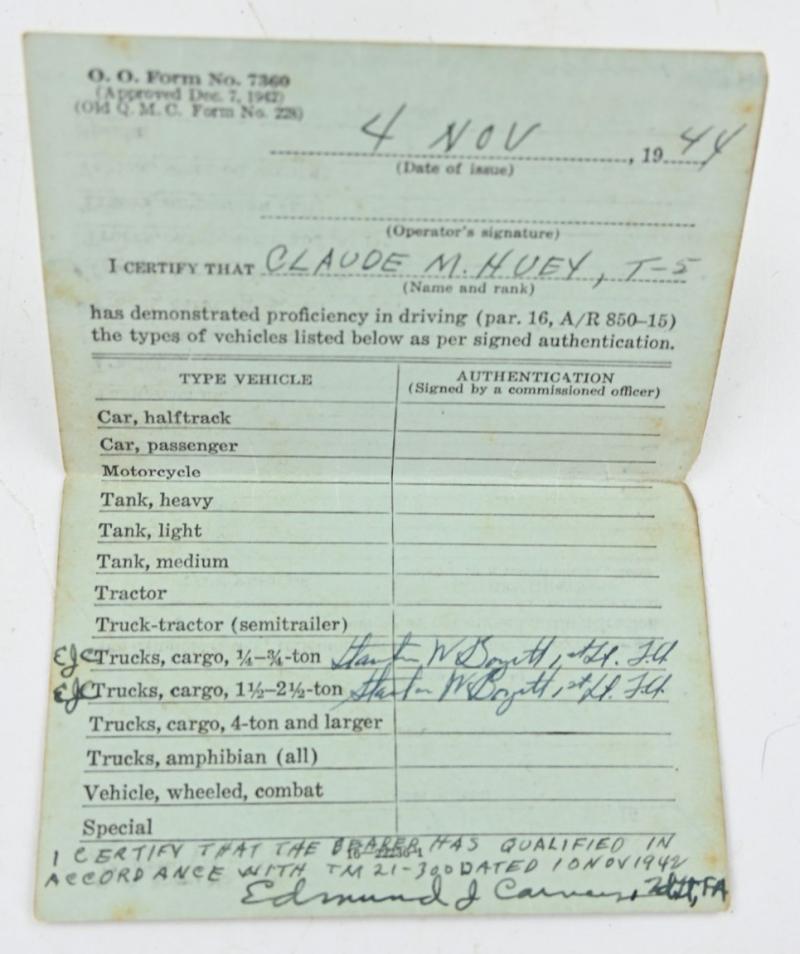 O. O. Form No. 7360
(Approved Dec. 7, 1942)
(Old Q. M. C. Form No. 228)
4 NOV , 19 44
(Date of issue)
(Operator's signature)
I CERTIFY THAT CLAUDE M. HUEY, T-5
(Name and rank)
has demonstrated proficiency in driving (par. 16, A/R 850–15)
the types of vehicles listed below as per signed authentication.
TYPE VEHICLE AUTHENTICATION
(Signed by a commissioned officer)
Car, halftrack
Car, passenger
Motorcycle
Tank, heavy
Tank, light
Tank, medium
Tractor
Truck-tractor (semitrailer)
EJC Trucks, cargo, ¼–¾-ton W 1st Lt. F.A.
EJC Trucks, cargo, 1½–2½-ton W 1st Lt. F.A.
Trucks, cargo, 4-ton and larger
Trucks, amphibian (all)
Vehicle, wheeled, combat
Special
I CERTIFY THAT THE BEARER HAS QUALIFIED IN
ACCORDANCE WITH TM 21-300 DATED 10 NOV 1942
Edmund J , FA